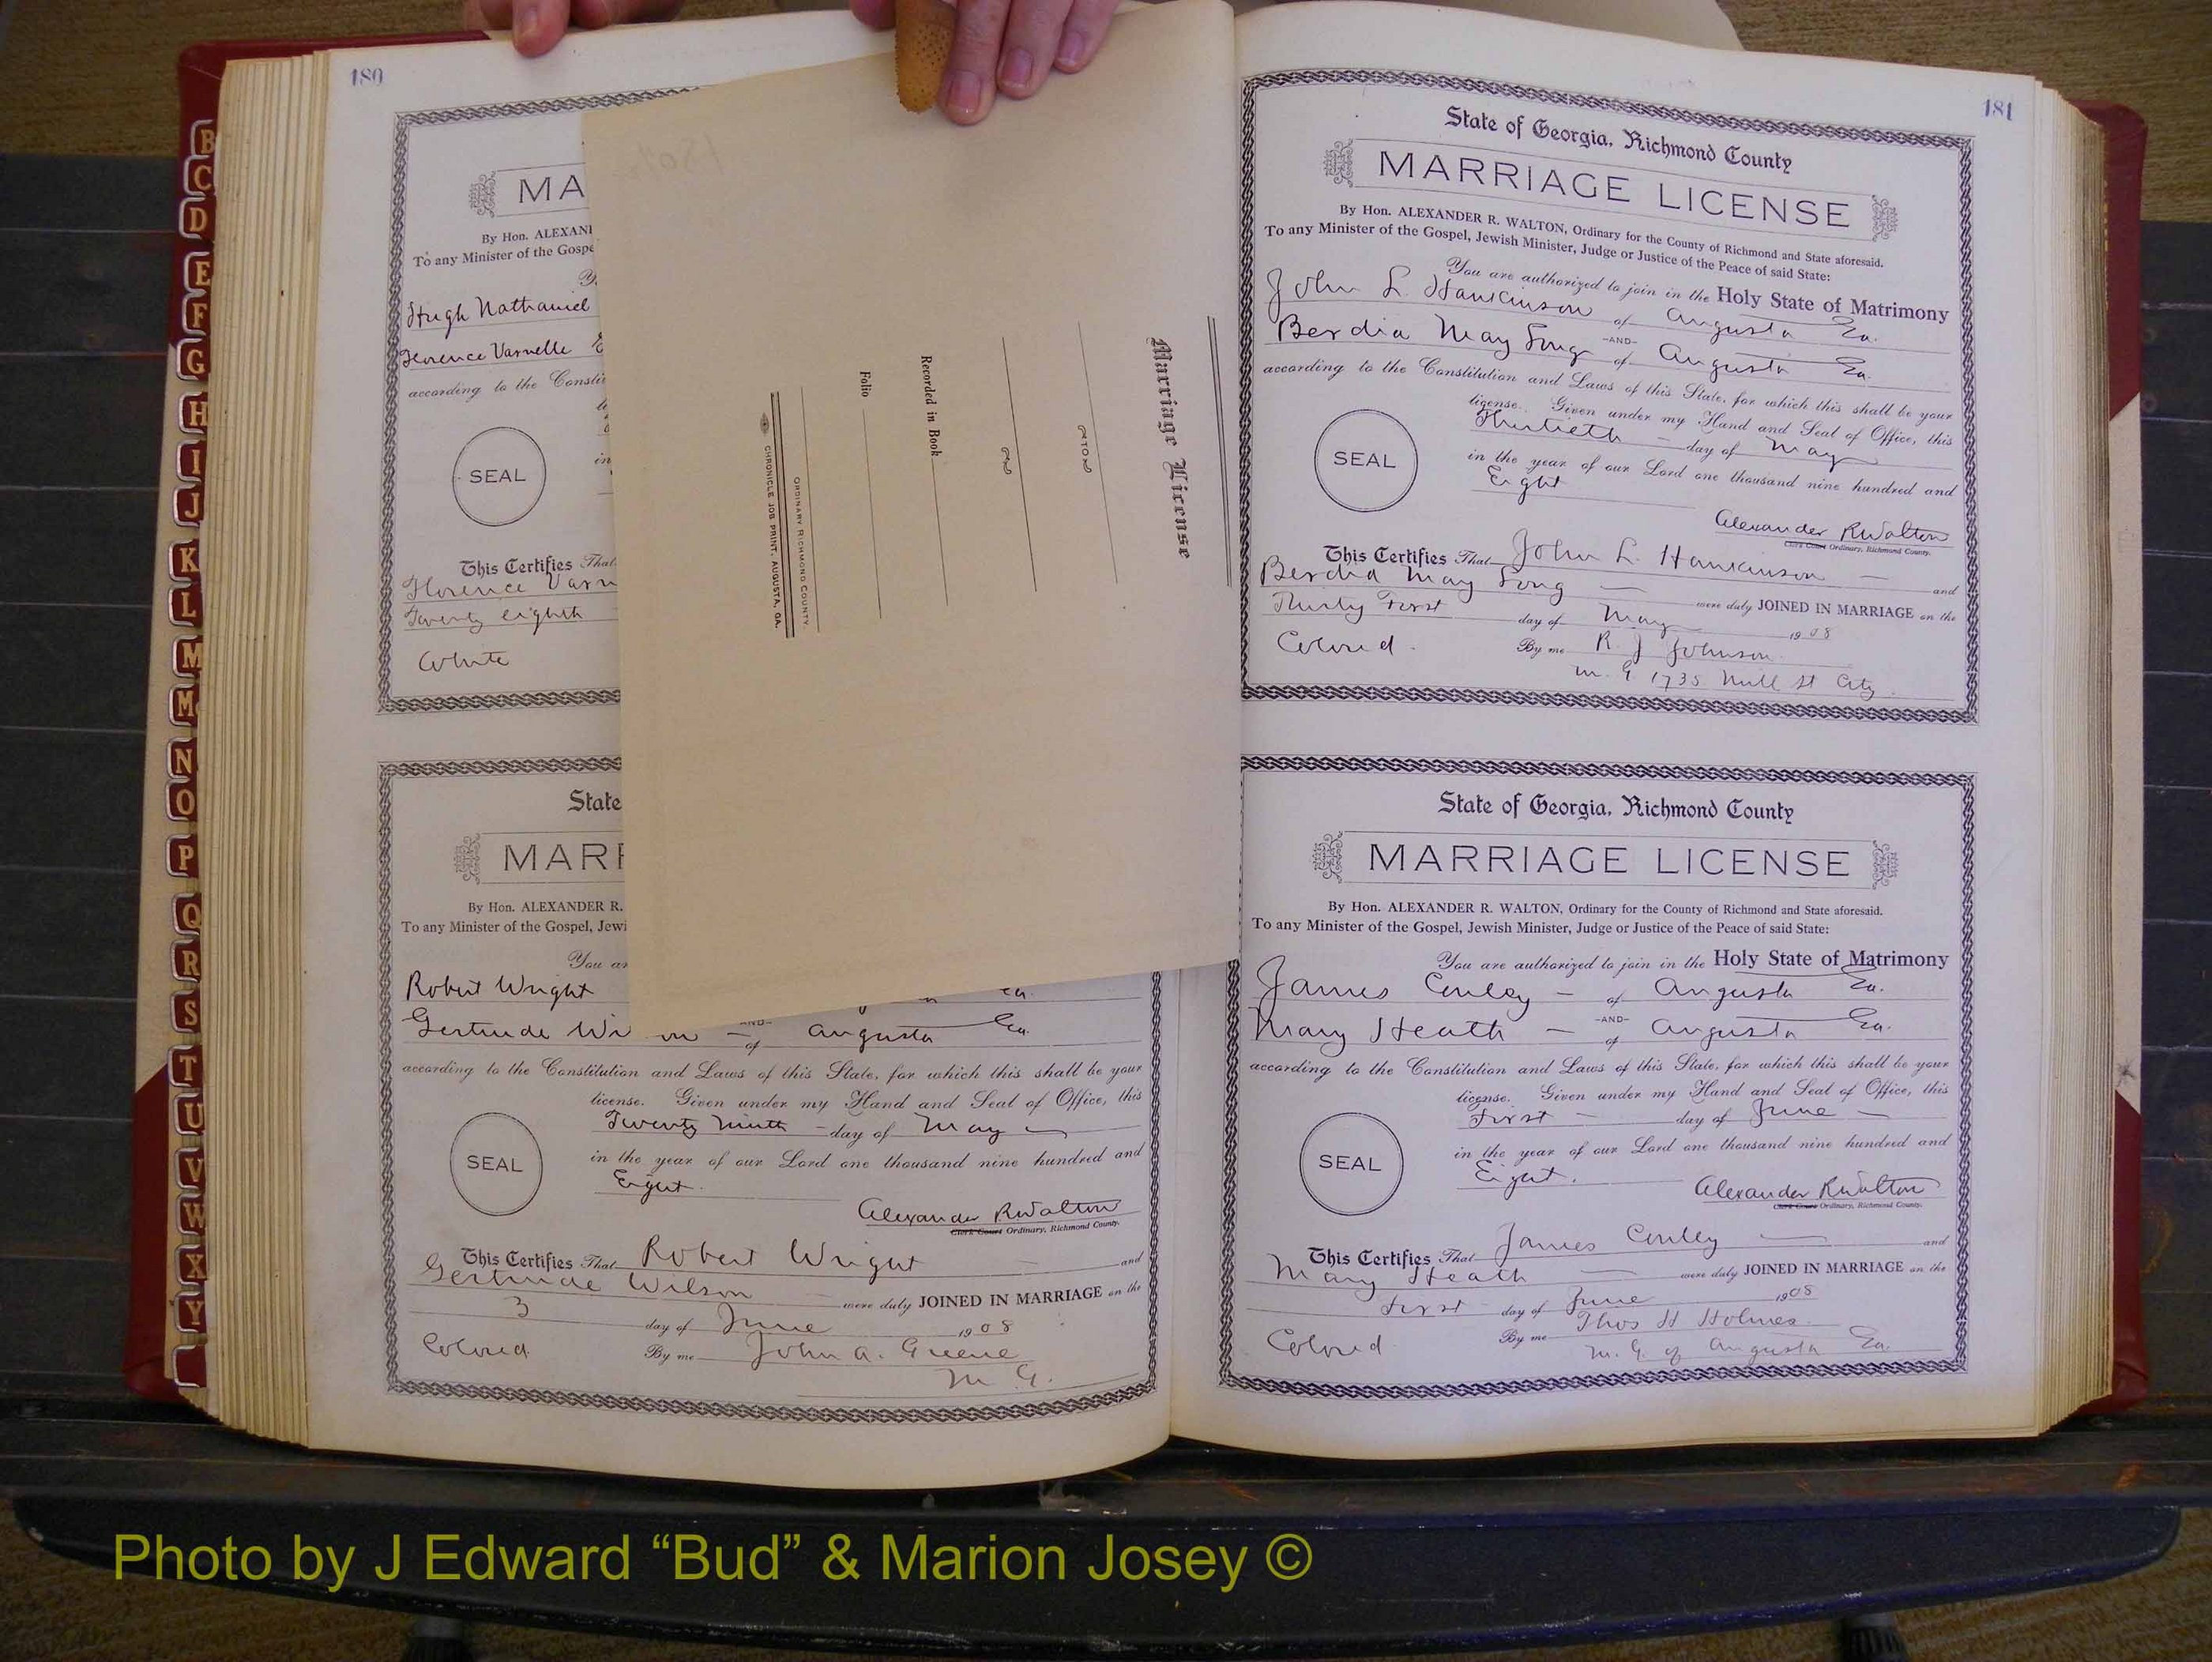 B
C
D
E
F
G
H
I
J
K
L
M
Mc
N
O
P
Q
R
S
T
U
V
W
X
Y
180
MA
By Hon. ALEXAN
To any Minister of the Gospe
Hugh Nathaniel
Florence Varnelle E
according to the Consti
SEAL
in
This Certifies That
Florence Varn
Twenty eighth
White
State
MARR
By Hon. ALEXANDER R.
To any Minister of the Gospel, Jewi
You ar
Robert Wright Ga.
Gertrude Wi on -AND- of Augusta Ga.
according to the Constitution and Laws of this State, for which this shall be your
license. Given under my Hand and Seal of Office, this
Twenty Ninth - day of May
SEAL
in the year of our Lord one thousand nine hundred and
Eight.
Alexander R Walton
Clerk Court Ordinary, Richmond County.
This Certifies That Robert Wright and
Gertrude Wilson were duly JOINED IN MARRIAGE on the
3 day of June 1908
Colored By me John A. Greene
M. G.
Marriage License
TO
Recorded in Book
Folio
ORDINARY RICHMOND COUNTY.
CHRONICLE JOB PRINT, AUGUSTA, GA.
181
State of Georgia, Richmond County
MARRIAGE LICENSE
By Hon. ALEXANDER R. WALTON, Ordinary for the County of Richmond and State aforesaid.
To any Minister of the Gospel, Jewish Minister, Judge or Justice of the Peace of said State:
You are authorized to join in the Holy State of Matrimony
John L. Hankinson of Augusta Ga.
-AND-
Berdia May Long of Augusta Ga.
according to the Constitution and Laws of this State, for which this shall be your
license. Given under my Hand and Seal of Office, this
Thirtieth - day of May
SEAL
in the year of our Lord one thousand nine hundred and
Eight
Alexander R Walton
Clerk Court Ordinary, Richmond County.
This Certifies That John L. Hankinson - and
Berdia May Long - were duly JOINED IN MARRIAGE on the
Thirty First day of May 1908
Colored. By me R. J Johnson.
M. G 1735 Mill St City.
State of Georgia, Richmond County
MARRIAGE LICENSE
By Hon. ALEXANDER R. WALTON, Ordinary for the County of Richmond and State aforesaid.
To any Minister of the Gospel, Jewish Minister, Judge or Justice of the Peace of said State:
You are authorized to join in the Holy State of Matrimony
James Conley - of Augusta Ga.
-AND-
Mary Heath - of Augusta Ga.
according to the Constitution and Laws of this State, for which this shall be your
license. Given under my Hand and Seal of Office, this
First - day of June -
SEAL
in the year of our Lord one thousand nine hundred and
Eight.
Alexander R Walton
Clerk Court Ordinary, Richmond County.
This Certifies That James Conley - and
Mary Heath - were duly JOINED IN MARRIAGE on the
First day of June 1908
Colored By me Thos H Holmes.
M. G. of Augusta Ga.
Photo by J Edward “Bud” & Marion Josey ©